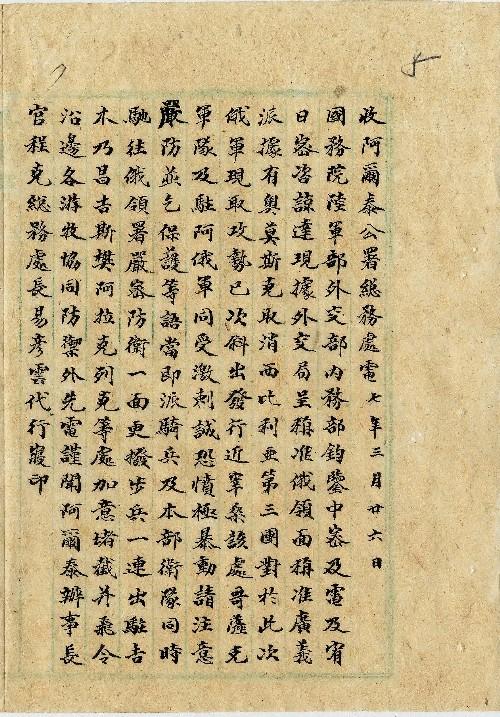 收阿爾泰公署總務處電 七年三月廿六日
國務院陸軍部外交部內務部鈞鑒中密及電及宥
日密咨諒達現據外交局呈稱准俄領面稱准廣義
派據有奧莫斯克取消西比利亞第三團對於此次
俄軍現取攻勢已次斜出發行近宰桑該處哥薩克
軍隊及駐阿俄軍同受激刺誠恐憤極暴動請注意
嚴防並乞保護等語當即派騎兵及本部衛隊同時
馳往俄領署嚴密防衛一面更撥步兵一連出駐吉
木乃昌吉斯樊阿拉克列克等處加意堵截并飛令
沿邊各游牧協同防禦外先電謹聞阿爾泰辦事長
官程克總務處長易彥雲代行寢印